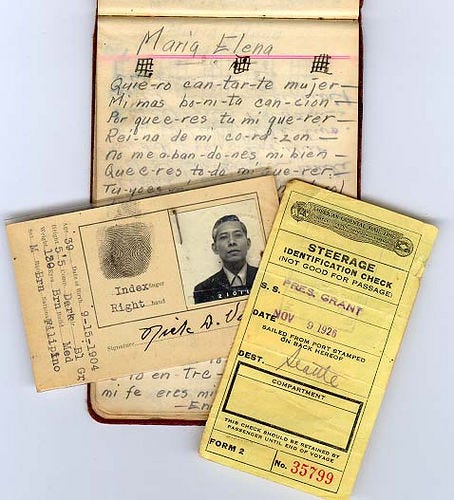 Maria Elena
Quie-ro can-tar-te mujer—
Mi mas bo-ni-ta can-cion—
Por quee-res tu mi que-rer—
Rei-na de mi co-ra-zon
No me a-ban-do-nes mi bien—
Que e-res to-do mi que-rer.
to en Tre-
mi fe eres mi
—En
Index finger
Right hand
Signature
Nick D.
9-15-1904
39
Dark
Med
Brn
139
Brn
M
Filipino
STEERAGE
IDENTIFICATION CHECK
(NOT GOOD FOR PASSAGE)
S. S. PRES. GRANT
DATE NOV 9 1926
SAILED FROM PORT STAMPED
ON BACK HEREOF
DEST. Seattle
COMPARTMENT
THIS CHECK SHOULD BE RETAINED BY
PASSENGER UNTIL END OF VOYAGE
FORM 2
No. 35799